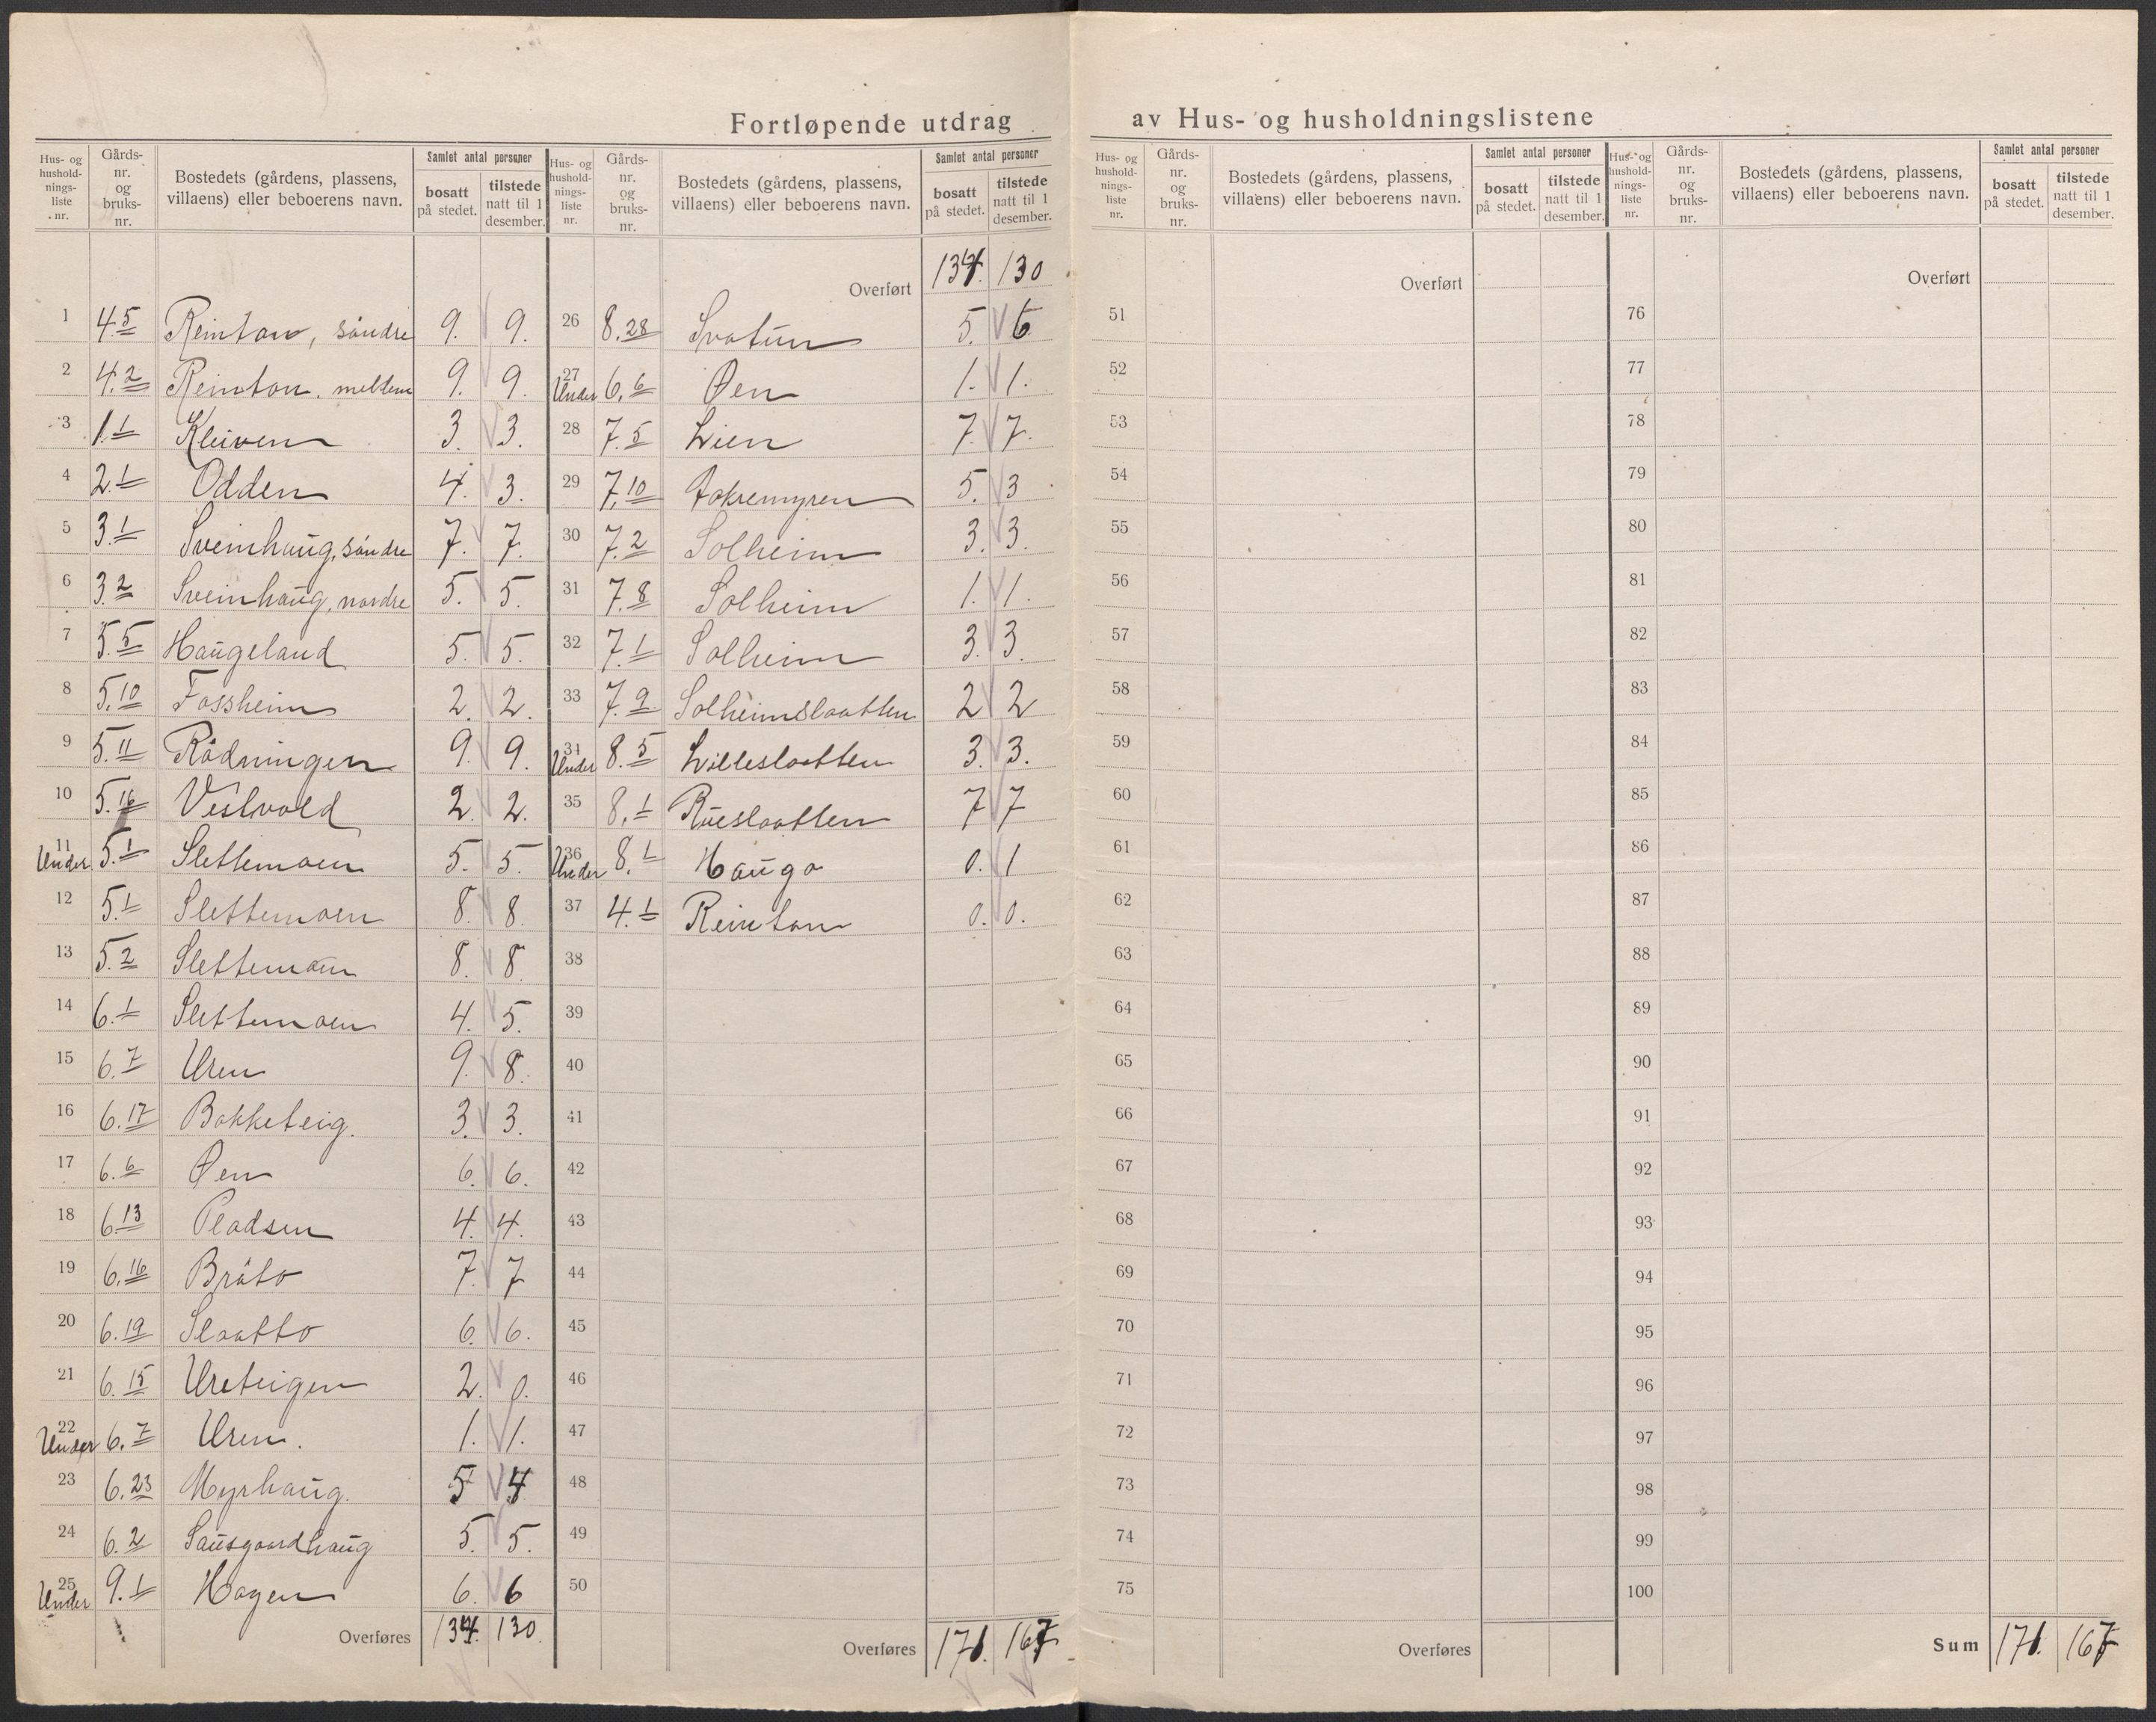 Fortløpende utdrag av Hus- og husholdningslistene
Hus- og husholdningsliste nr. | Gårds-nr. og bruks-nr. | Bostedets (gårdens, plassens, villaens) eller beboerens navn. | Samlet antal personer | bosatt på stedet. | tilstede natt til 1 desember.
1 4.5 Reinton, søndre 9. 9.
2 4.2 Reinton, mellem 9. 9.
3 1.1 Kleiven 3. 3.
4 2.1 Odden 4. 3.
5 3.1 Sveinhaug, søndre 7. 7.
6 3.2 Sveinhaug, nordre 5. 5.
7 5.5 Haugeland 5. 5.
8 5.10 Fossheim 2. 2.
9 5.11 Rødningen 9. 9.
10 5.16 Vestvold 2. 2.
11 Under 5.1 Slettemoen 5. 5.
12 5.1 Slettemoen 8. 8.
13 5.2 Slettemoen 8. 8.
14 6.1 Slettemoen 4. 5.
15 6.7 Uren 9. 8.
16 6.17 Bakketeig. 3. 3.
17 6.6 Øen 6. 6.
18 6.13 Pladsen 4. 4.
19 6.16 Bråto 7. 7
20 6.19 Slaatto 6. 6.
21 6.15 Ureteigen 2. 0.
22 Under 6.7 Uren. 1. 1.
23 6.23 Myrhaug. 5 4
24 6.2 Sausgaardhaug 5. 5.
25 Under 9.1 Hagen 6. 6
Overføres 134. 130.
Hus- og husholdningsliste nr. | Gårds-nr. og bruks-nr. | Bostedets (gårdens, plassens, villaens) eller beboerens navn. | Samlet antal personer | bosatt på stedet. | tilstede natt til 1 desember.
Overført 134. 130
26 8.28 Svatun 5. 6
27 Under 6.6 Øen 1. 1.
28 7.5 Lien 7. 7.
29 7.10 5. 3
30 7.2 Solheim 3. 3.
31 7.8 Solheim 1. 1.
32 7.1 Solheim 3. 3.
33 7.9 Solheimslaatten 2 2
34 Under 8.5 Lilleslaatten 3. 3.
35 8.1 Rueslaatten 7 7
36 Under 8.1 Haugo 0. 1
37 4.1 Reinton 0. 0.
38
39
40
41
42
43
44
45
46
47
48
49
50
Overføres 171. 167
Hus- og husholdningsliste nr. | Gårds-nr. og bruks-nr. | Bostedets (gårdens, plassens, villaens) eller beboerens navn. | Samlet antal personer | bosatt på stedet. | tilstede natt til 1 desember.
Overført
51
52
53
54
55
56
57
58
59
60
61
62
63
64
65
66
67
68
69
70
71
72
73
74
75
Overføres
Hus- og husholdningsliste nr. | Gårds-nr. og bruks-nr. | Bostedets (gårdens, plassens, villaens) eller beboerens navn. | Samlet antal personer | bosatt på stedet. | tilstede natt til 1 desember.
Overført
76
77
78
79
80
81
82
83
84
85
86
87
88
89
90
91
92
93
94
95
96
97
98
99
100
Sum 171. 167